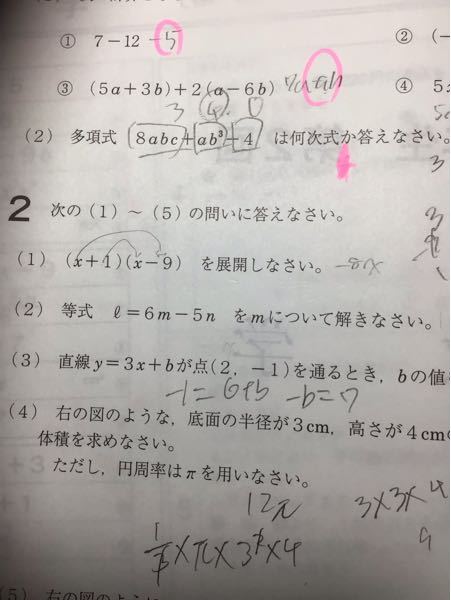 ① 7－12 -5 ② (－
③ (5a＋3b)＋2(a－6b) 7a-9b ④ 5
3 4 0
(2) 多項式 8abc＋ab³－4 は何次式か答えなさい。
4 3
2 次の(1)～(5)の問いに答えなさい。
(1) (x＋1)(x－9) を展開しなさい。 -8x
(2) 等式 ℓ＝6m－5n をmについて解きなさい。
(3) 直線y＝3x＋bが点(2，－1)を通るとき，bの値
-1=6+b -b=7
(4) 右の図のような，底面の半径が3cm，高さが4cmの
体積を求めなさい。
ただし，円周率はπを用いなさい。
12π 3×3×4
×π×3 ×4 9
(5) 右の図のように